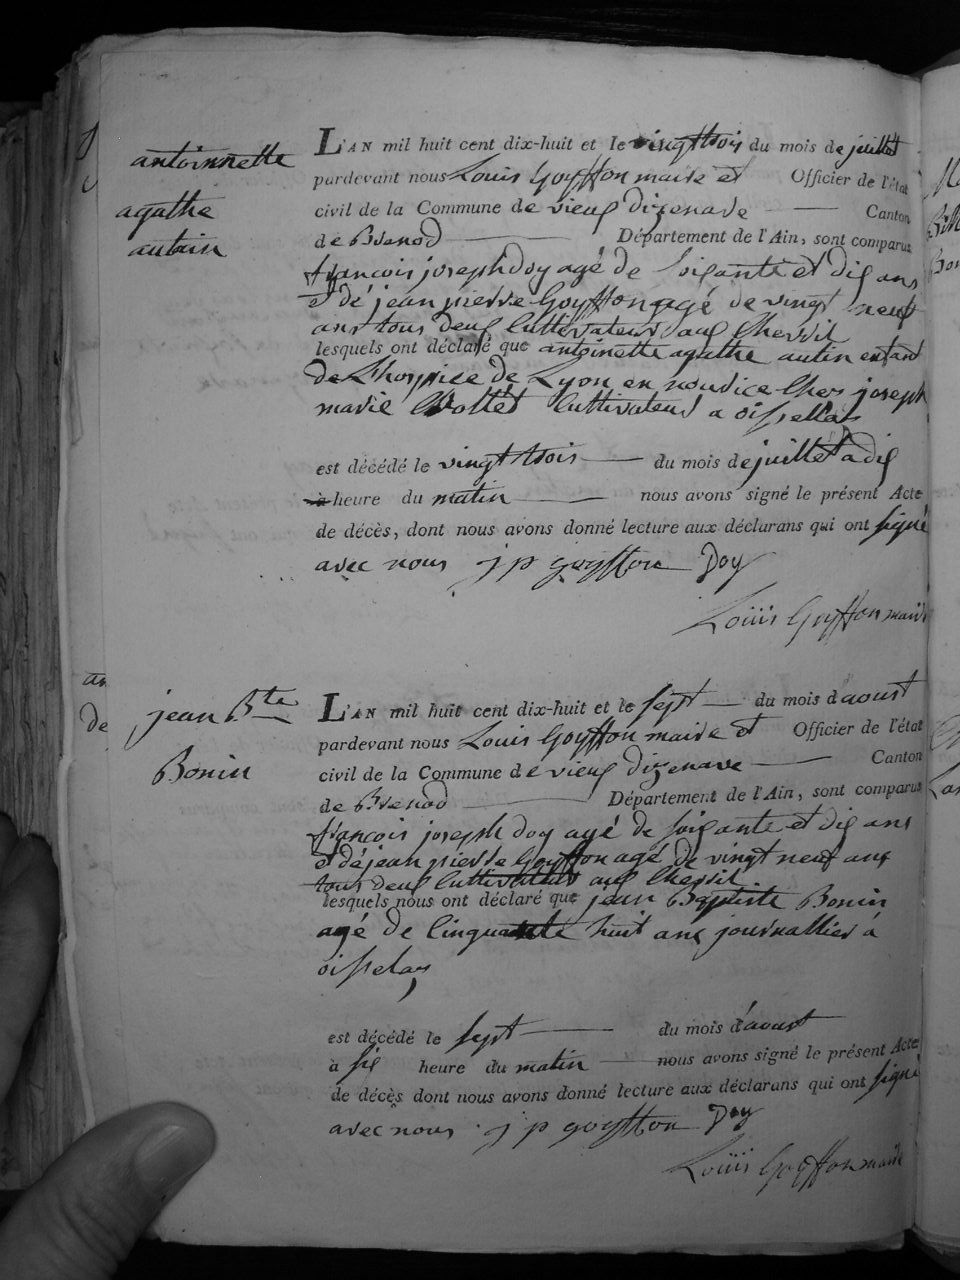 antoinnette
agathe
autain
L'AN mil huit cent dix-huit et le vingt trois du mois de juillet
pardevant nous Louis Goyffon maire et Officier de l'état
civil de la Commune de vieux dizenave Canton
de Brenod Département de l'Ain, sont comparus
francois joseph doy agé de soixante et dix ans
et de jean pierre Goyffon agé de vingt neuf
ans tous deux Cultivateurs aux
lesquels ont déclaré que antoinette agathe autin enfant
de Lhospice de Lyon en nourice Chez joseph
marie Cultivateur a oisselas
est décédé le vingt trois du mois de juillet a dix
à heure du matin nous avons signé le présent Acte
de décès, dont nous avons donné lecture aux déclarans qui ont signé
avec nous j p goyffon Doy
Louis Goyffon maire
an
de
jean Bte
Bonin
L'AN mil huit cent dix-huit et le sept du mois d'aoust
pardevant nous Louis Goyffon maire et Officier de l'état
civil de la Commune de vieux dizenave Canton
de Brenod Département de l'Ain, sont comparus
francois joseph doy agé de soixante et dix ans
et de jean pierre Goyffon agé de vingt neuf ans
tous deux Cultivateurs aux
lesquels nous ont déclaré que jean Baptiste Bonin
agé de Cinquante huit ans journallier à
oisselas
est décédé le sept du mois d'aoust
à six heure du matin nous avons signé le présent Acte
de décès dont nous avons donné lecture aux déclarans qui ont signé
avec nous j p goyffon Doy
Louis Goyffon maire